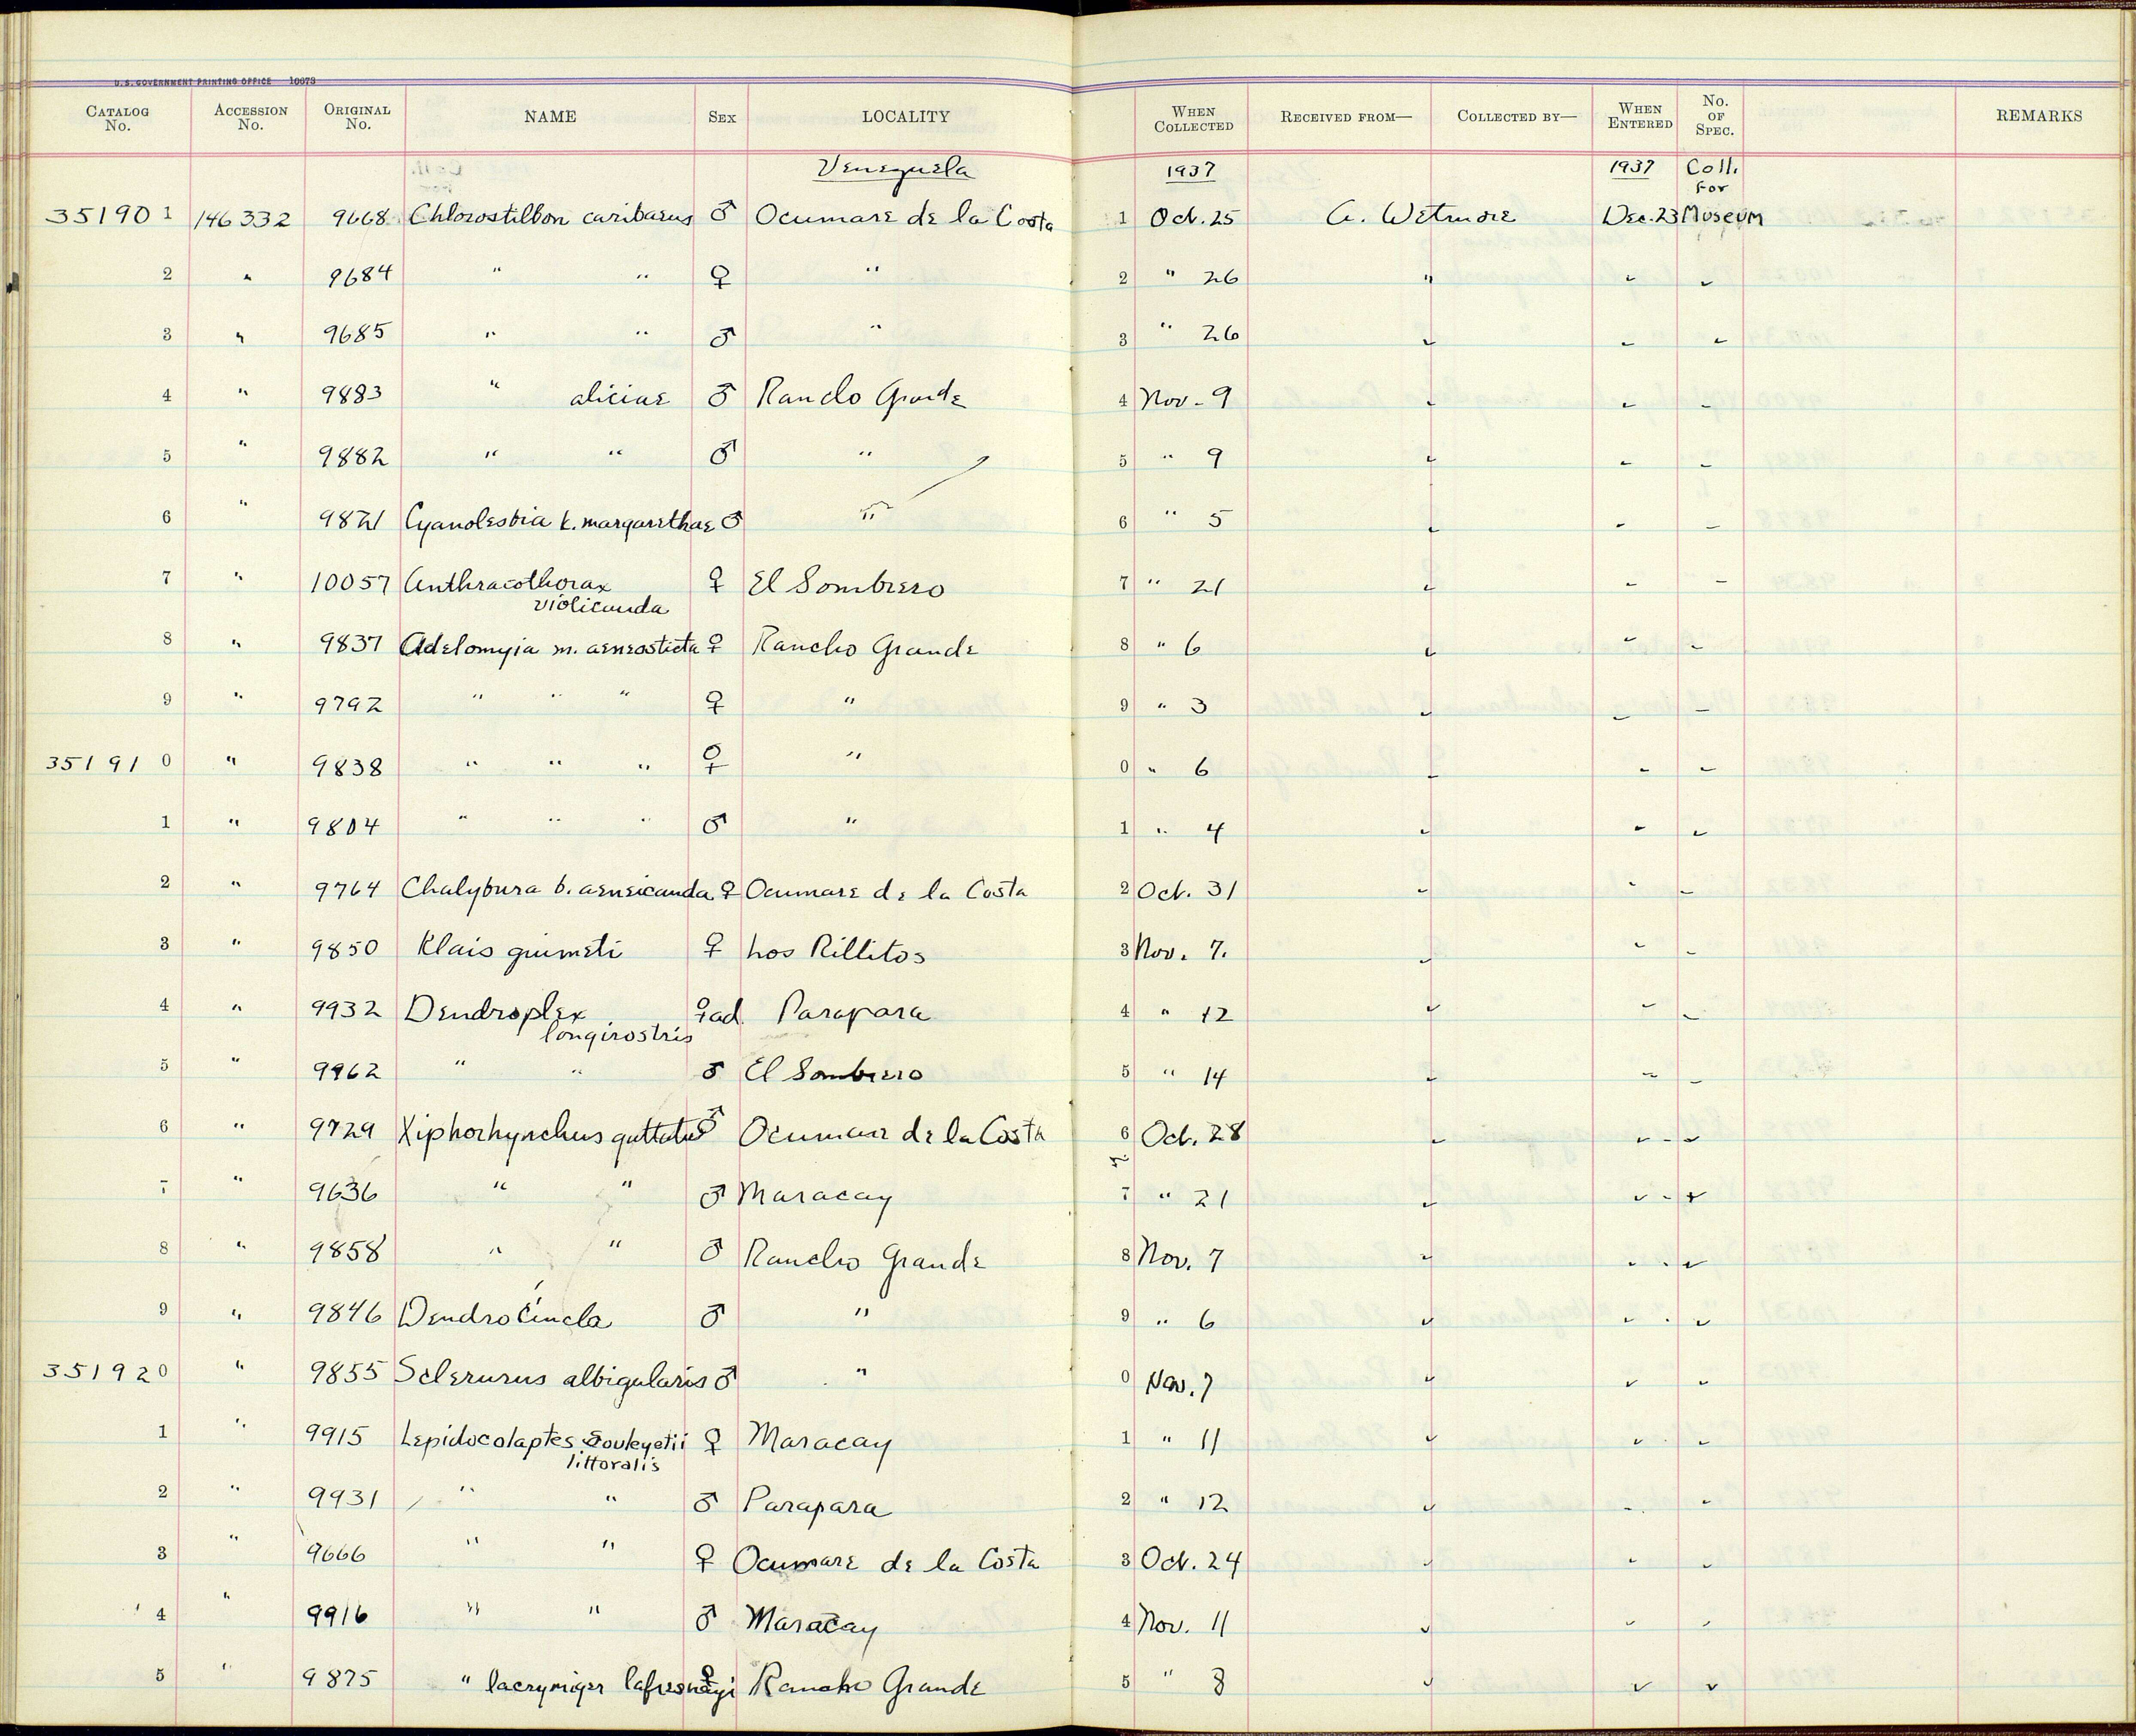 U.S. GOVERNMENT PRINTING OFFICE 10073
CATALOG No. ACCESSION No. ORIGINAL No. NAME SEX LOCALITY WHEN COLLECTED RECEIVED FROM— COLLECTED BY— WHEN ENTERED No. OF SPEC. REMARKS
Venezuela 1937 1937 Coll. For
351901 146332 9668 Chlorostilbon caribaeus ♂ Ocumare de la Costa 1 Oct. 25 A. Wetmore Dec. 23 Museum
2 " 9684 " " ♀ " 2 " 26 " " "
3 " 9685 " " ♂ " 3 " 26 " " "
4 " 9883 " aliciae ♂ Rancho Grande 4 Nov - 9 " " "
5 " 9882 " " ♂ " 5 " 9 " " "
6 " 9821 Cyanolesbia k. margarethae ♂ " 6 " 5 " " "
7 " 10057 Anthracothorax ♀ El Sombrero 7 " 21 " " "
violicauda
8 " 9837 Adelomyia m. aeneosticta ♀ Rancho Grande 8 " 6 " " "
9 " 9792 " " " ♀ " 9 " 3 " " "
351910 " 9838 " " " ♀ " 0 " 6 " " "
1 " 9804 " " " ♂ " 1 " 4 " " "
2 " 9764 Chalybura b. aeneicauda ♀ Ocumare de la Costa 2 Oct. 31 " " "
3 " 9850 Klais guimeti ♀ Los Rillitos 3 Nov. 7. " " "
4 " 9932 Dendroplex ♀ad. Parapara 4 " 12 " " "
longirostris
5 " 9962 " " ♂ El Sombrero 5 " 14 " " "
6 " 9729 Xiphorhynchus guttatus ♂ Ocumare de la Costa 6 Oct. 28 " " "
7 " 9636 " " ♂ Maracay 7 " 21 " " "
8 " 9858 " " ♂ Rancho Grande 8 Nov. 7 " " "
9 " 9846 Dendrocincla ♂ " 9 " 6 " " "
351920 " 9855 Sclerurus albigularis ♂ " 0 Nov. 7 " " "
1 " 9915 Lepidocolaptes souleyetii ♀ Maracay 1 " 11 " " "
littoralis
2 " 9931 " " ♂ Parapara 2 " 12 " " "
3 " 9666 " " ♀ Ocumare de la Costa 3 Oct. 24 " " "
4 " 9916 " " ♂ Maracay 4 Nov. 11 " " "
5 " 9875 " lacrymiger lafresnayi ♀ Rancho Grande 5 " 8 " " "